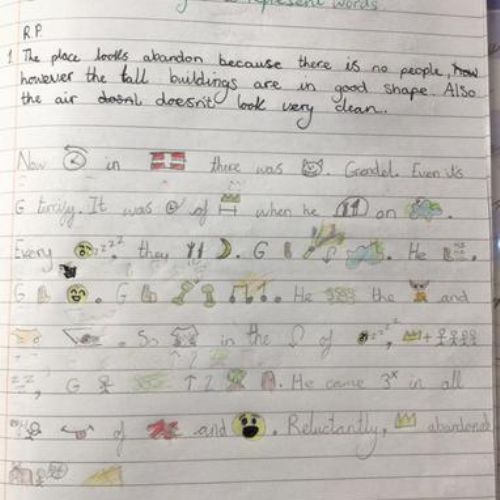 represent words
R.P.
1. The place looks abandon because there is no people, how
however the tall buildings are in good shape. Also
the air doesnt doesn't look very clean.
Now in there was . Grendel. Even it's
G terrify. It was of when he on .
Every , they . G . He .
G . G . He the and
. So in the of , +
zz, G ↑ 2 . He came 3x in all
of and . Reluctantly, abandoned